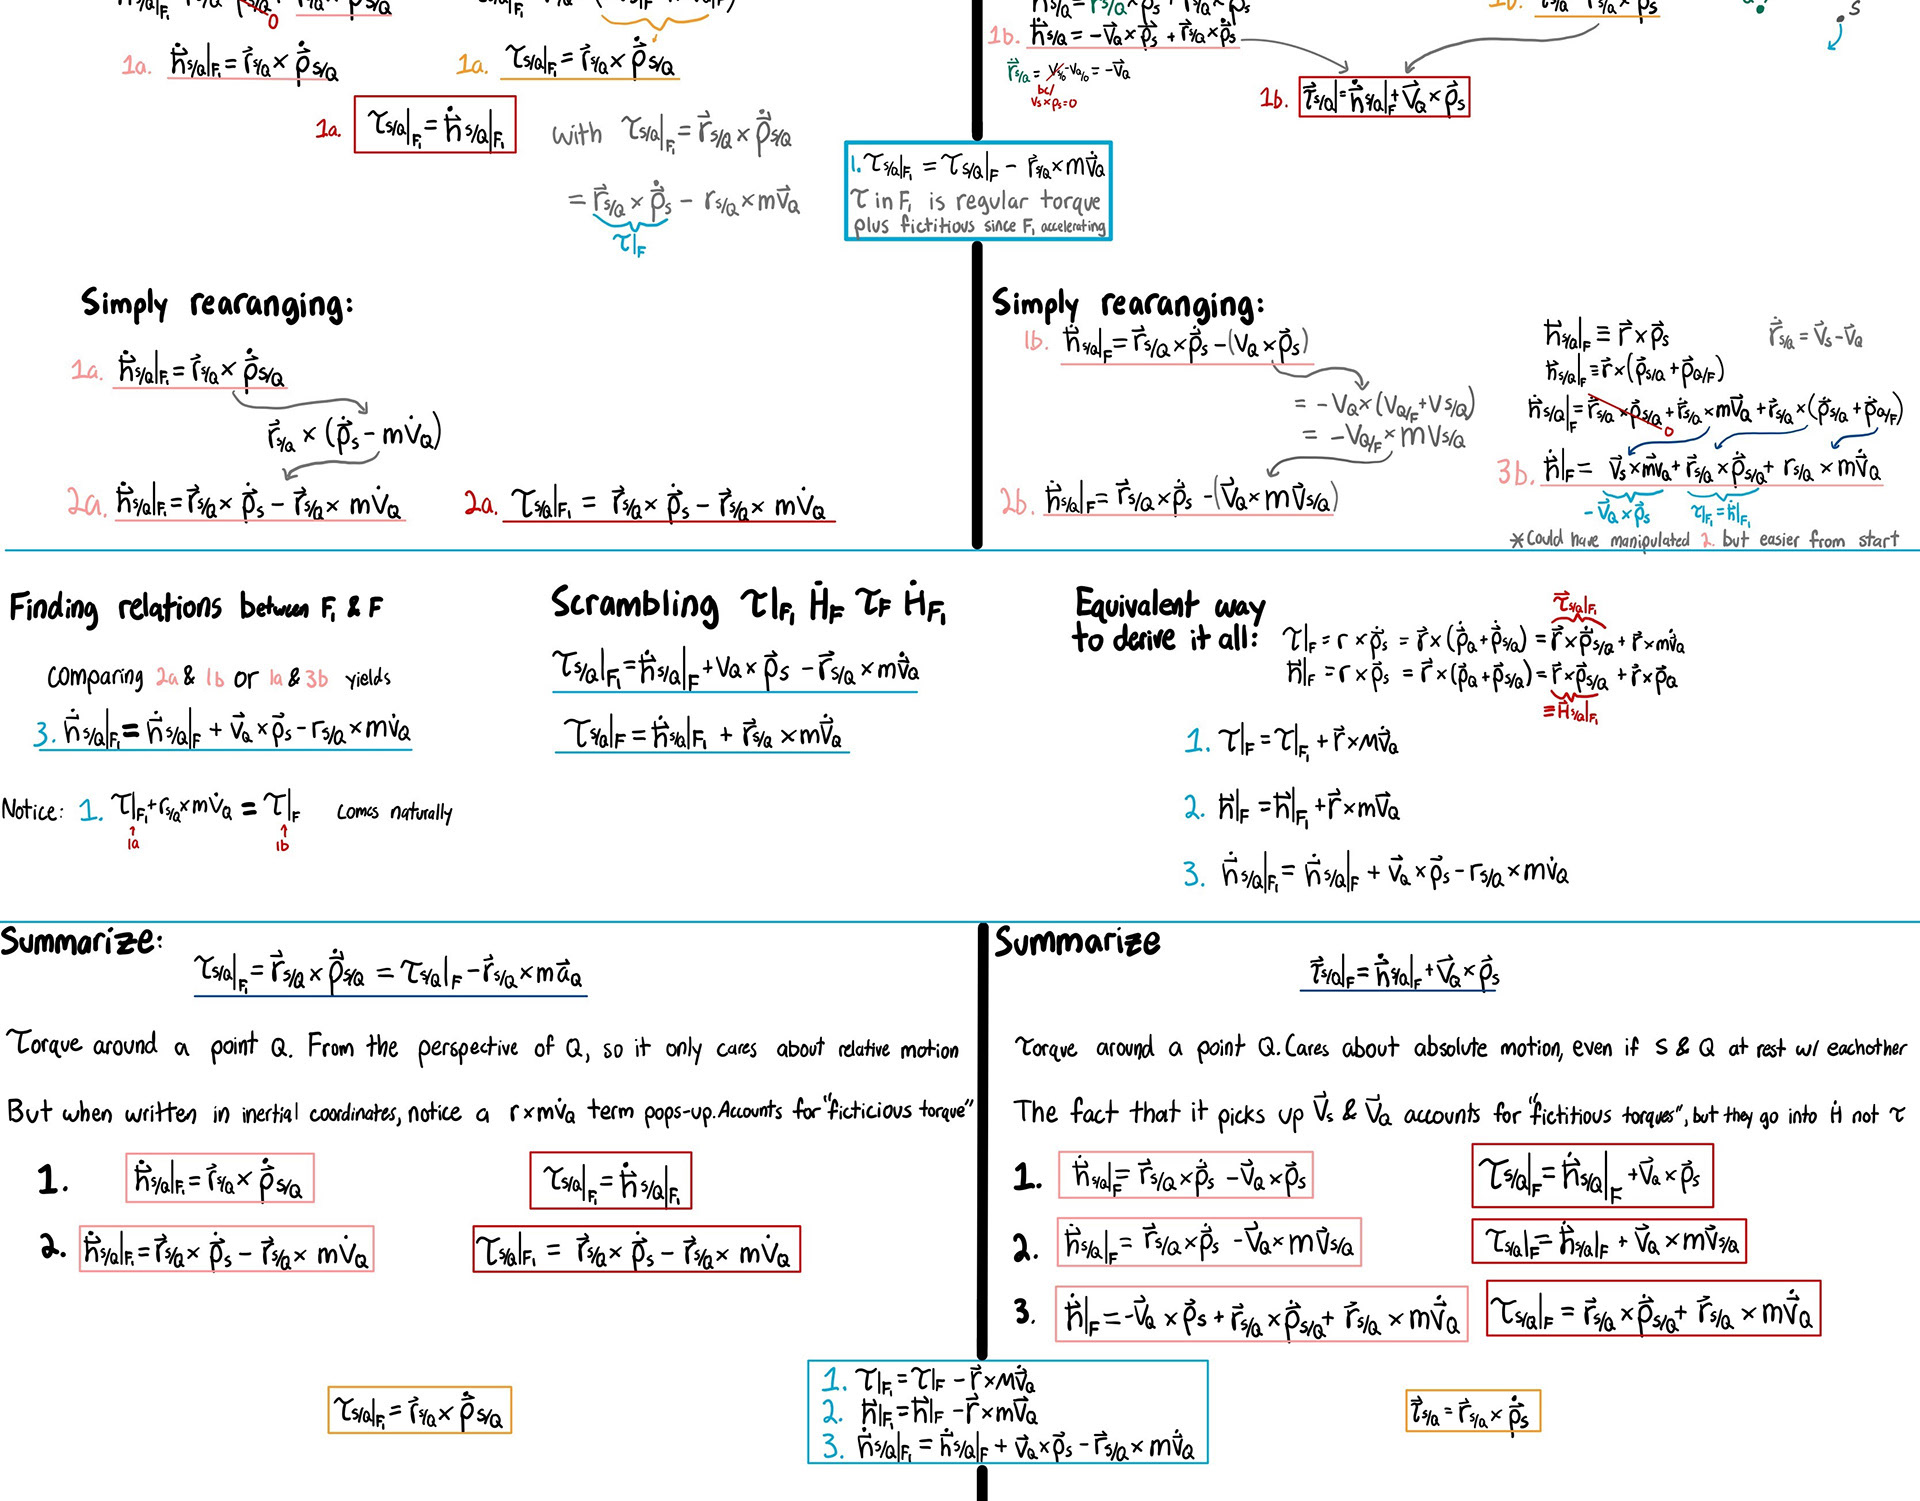 1a. ḣs/Q|F₁ = r⃗s/Q × ρ⃗̇s/Q
1a. τs/Q|F₁ = r⃗s/Q × ρ⃗̇s/Q
1a. τs/Q|F₁ = ḣs/Q|F₁
with τs/Q|F₁ = r⃗s/Q × ρ⃗̇s/Q
= r⃗s/Q × ρ⃗̇s − rs/Q × mv⃗Q
τ|F
1b. ḣs/Q = −v⃗Q × ρ⃗s + r⃗s/Q × ρ⃗̇s
r⃗̇s/Q = vs/o − vQ/o = −v⃗Q
bc/
vs × ρs = 0
1b. τ⃗s/Q| = h⃗̇s/Q|F + v⃗Q × ρ⃗s
S
1. τs/Q|F₁ = τs/Q|F − r⃗s/Q × mv⃗̇Q
τ in F₁ is regular torque
plus fictitious since F₁ accelerating
Simply rearanging:
1a. h⃗̇s/Q|F₁ = r⃗s/Q × ρ⃗̇s/Q
r⃗s/Q × (ρ⃗̇s − mv̇Q)
2a. h⃗̇s/Q|F₁ = r⃗s/Q × ρ⃗̇s − r⃗s/Q × mv̇Q
2a. τs/Q|F₁ = r⃗s/Q × ρ⃗̇s − r⃗s/Q × mv̇Q
Simply rearanging:
1b. h⃗̇s/Q|F = r⃗s/Q × ρ⃗̇s − (vQ × ρ⃗s)
= −vQ × (vQ/F + vs/Q)
= −vQ/F × mvs/Q
2b. h⃗̇s/Q|F = r⃗s/Q × ρ⃗̇s − (v⃗Q × mv⃗s/Q)
h⃗s/Q|F ≡ r⃗ × ρ⃗s
r⃗̇s/Q = v⃗s − v⃗Q
h⃗s/Q|F ≡ r⃗ × (ρ⃗s/Q + ρ⃗Q/F)
h⃗̇s/Q|F = r⃗̇s/Q × ρs/Q + r⃗̇s/Q × mv⃗Q + r⃗s/Q × (ρ⃗̇s/Q + ρ⃗̇Q/F)
0
3b. h⃗̇|F = v⃗s × mvQ + r⃗s/Q × ρ⃗̇s/Q + rs/Q × mv⃗̇Q
−v⃗Q × ρ⃗s
τ|F₁ = ḣ|F₁
*Could have manipulated 2. but easier from start
Finding relations between F₁ & F
comparing 2a & 1b or 1a & 3b yields
3. h⃗̇s/Q|F₁ = h⃗̇s/Q|F + v⃗Q × ρ⃗s − rs/Q × mv̇Q
Notice: 1. τ|F₁ + rs/Q × mv̇Q = τ|F comes naturally
1a
1b
Scrambling τ|F₁ ḢF τF ḢF₁
τs/Q|F₁ = h⃗̇s/Q|F + vQ × ρ⃗s − r⃗s/Q × mv⃗̇Q
τs/Q|F = h⃗̇s/Q|F₁ + r⃗s/Q × mv⃗̇Q
Equivalent way
to derive it all:
τ⃗s/Q|F₁
τ|F = r × ρ⃗̇s = r⃗ × (ρ⃗̇Q + ρ⃗̇s/Q) = r⃗ × ρ⃗̇s/Q + r⃗ × mv̇Q
h⃗|F = r × ρ⃗s = r⃗ × (ρ⃗Q + ρ⃗s/Q) = r⃗ × ρ⃗s/Q + r⃗ × ρQ
≡ H⃗s/Q|F₁
1. τ|F = τ|F₁ + r⃗ × mv⃗̇Q
2. h⃗|F = h⃗|F₁ + r⃗ × mv⃗Q
3. h⃗̇s/Q|F₁ = h⃗̇s/Q|F + v⃗Q × ρ⃗s − rs/Q × mv̇Q
Summarize:
τs/Q|F₁ = r⃗s/Q × ρ⃗̇s/Q = τs/Q|F − r⃗s/Q × ma⃗Q
Torque around a point Q. From the perspective of Q, so it only cares about relative motion
But when written in inertial coordinates, notice a r × mv̇Q term pops-up. Accounts for "ficticious torque"
1. h⃗̇s/Q|F₁ = r⃗s/Q × ρ⃗̇s/Q
τs/Q|F₁ = h⃗̇s/Q|F₁
2. h⃗̇s/Q|F₁ = r⃗s/Q × ρ⃗̇s − r⃗s/Q × mv̇Q
τs/Q|F₁ = r⃗s/Q × ρ⃗̇s − r⃗s/Q × mv̇Q
τs/Q|F₁ = r⃗s/Q × ρ⃗̇s/Q
Summarize
τ⃗s/Q|F = h⃗̇s/Q|F + v⃗Q × ρ⃗s
Torque around a point Q. Cares about absolute motion, even if S & Q at rest w/ eachother
The fact that it picks up v⃗s & v⃗Q accounts for "fictitious torques", but they go into Ḣ not τ
1. h⃗̇s/Q|F = r⃗s/Q × ρ⃗̇s − v⃗Q × ρ⃗s
τs/Q|F = h⃗̇s/Q|F + v⃗Q × ρ⃗s
2. h⃗̇s/Q|F = r⃗s/Q × ρ⃗̇s − v⃗Q × mv⃗s/Q
τs/Q|F = h⃗̇s/Q|F + v⃗Q × mv⃗s/Q
3. h⃗̇|F = −v⃗Q × ρ⃗s + r⃗s/Q × ρ⃗̇s/Q + r⃗s/Q × mv⃗̇Q
τs/Q|F = r⃗s/Q × ρ⃗̇s/Q + r⃗s/Q × mv⃗̇Q
1. τ|F₁ = τ|F − r⃗ × mv⃗̇Q
2. h⃗|F₁ = h⃗|F − r⃗ × mv⃗Q
3. h⃗̇s/Q|F₁ = h⃗̇s/Q|F + v⃗Q × ρ⃗s − r⃗s/Q × mv⃗̇Q
τ⃗s/Q = r⃗s/Q × ρ⃗̇s